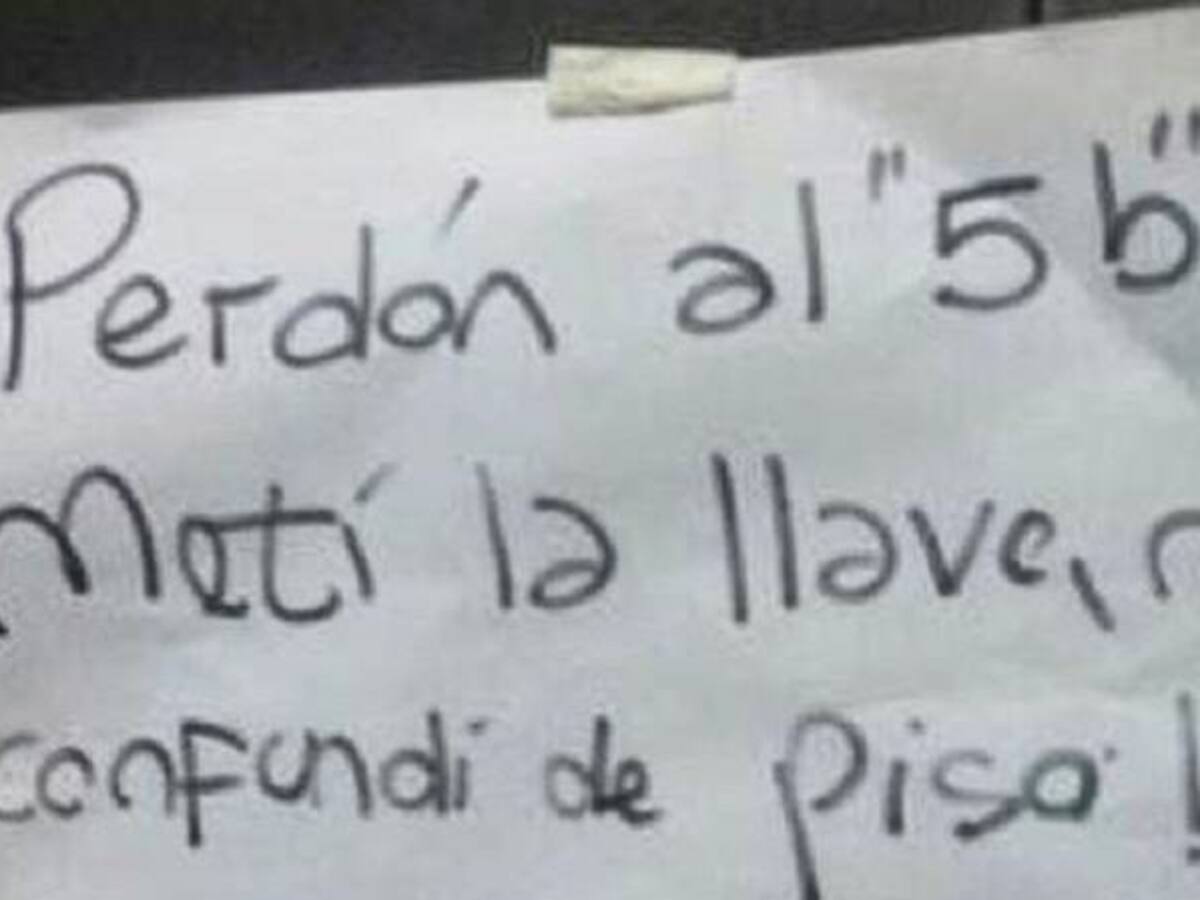 Perdón al "5b"
Metí la llave,
confundí de piso!